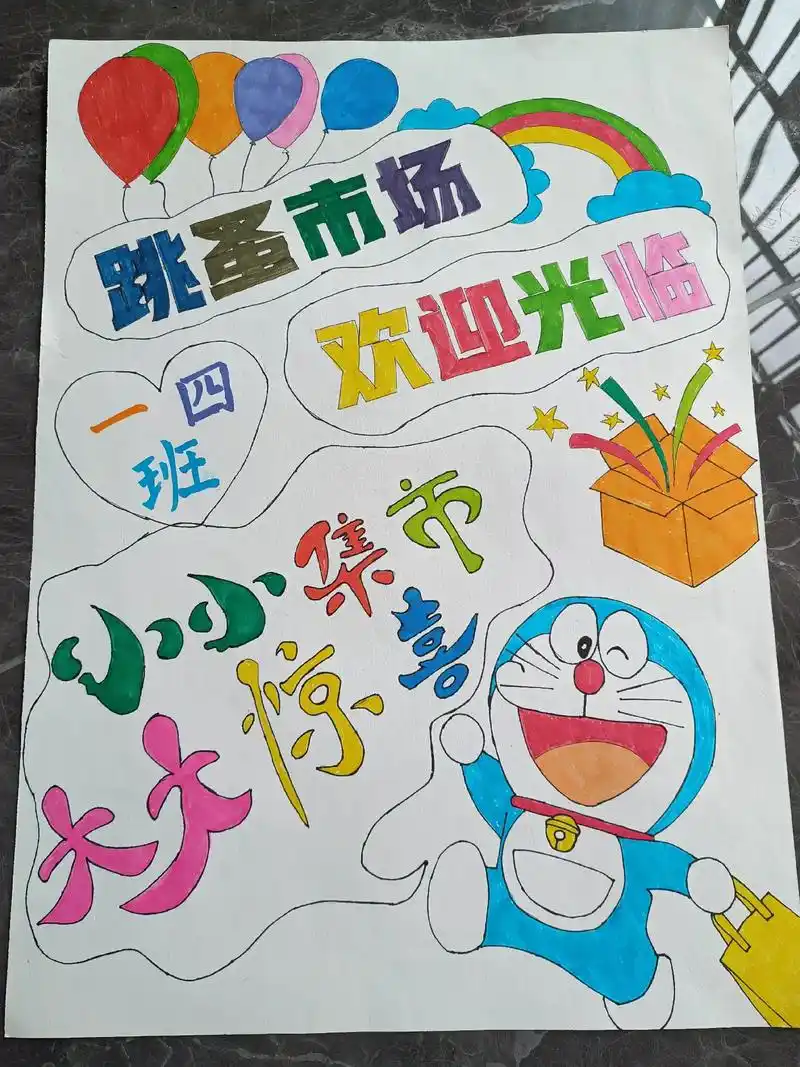 跳蚤市场
欢迎光临
一四
班
小小集市
大大惊喜